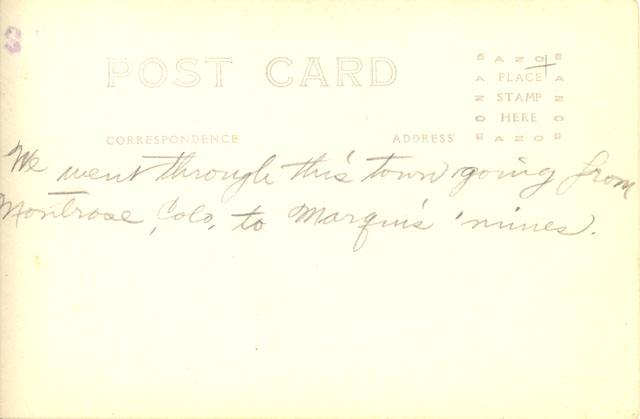 POST CARD
AZO
PLACE
STAMP
HERE
AZO
CORRESPONDENCE
ADDRESS
We went through this town going from
Montrose, Colo. to Marquis' mines.